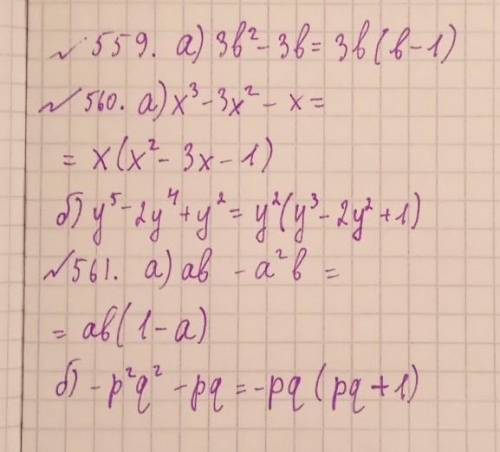 √559. а) 3в² - 3в = 3в(в - 1)
√560. а) x³ - 3x² - x =
= x(x² - 3x - 1)
б) y⁵ - 2y⁴ + y² = y²(y³ - 2y² + 1)
√561. а) aв - a²в =
= aв(1 - a)
б) -p²q² - pq = -pq(pq + 1)